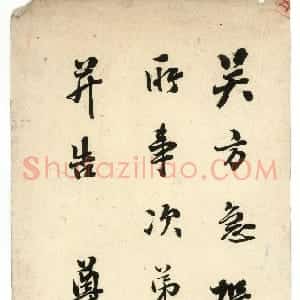 吴方急
所事次第
并告尊
Shufaziliao.COM